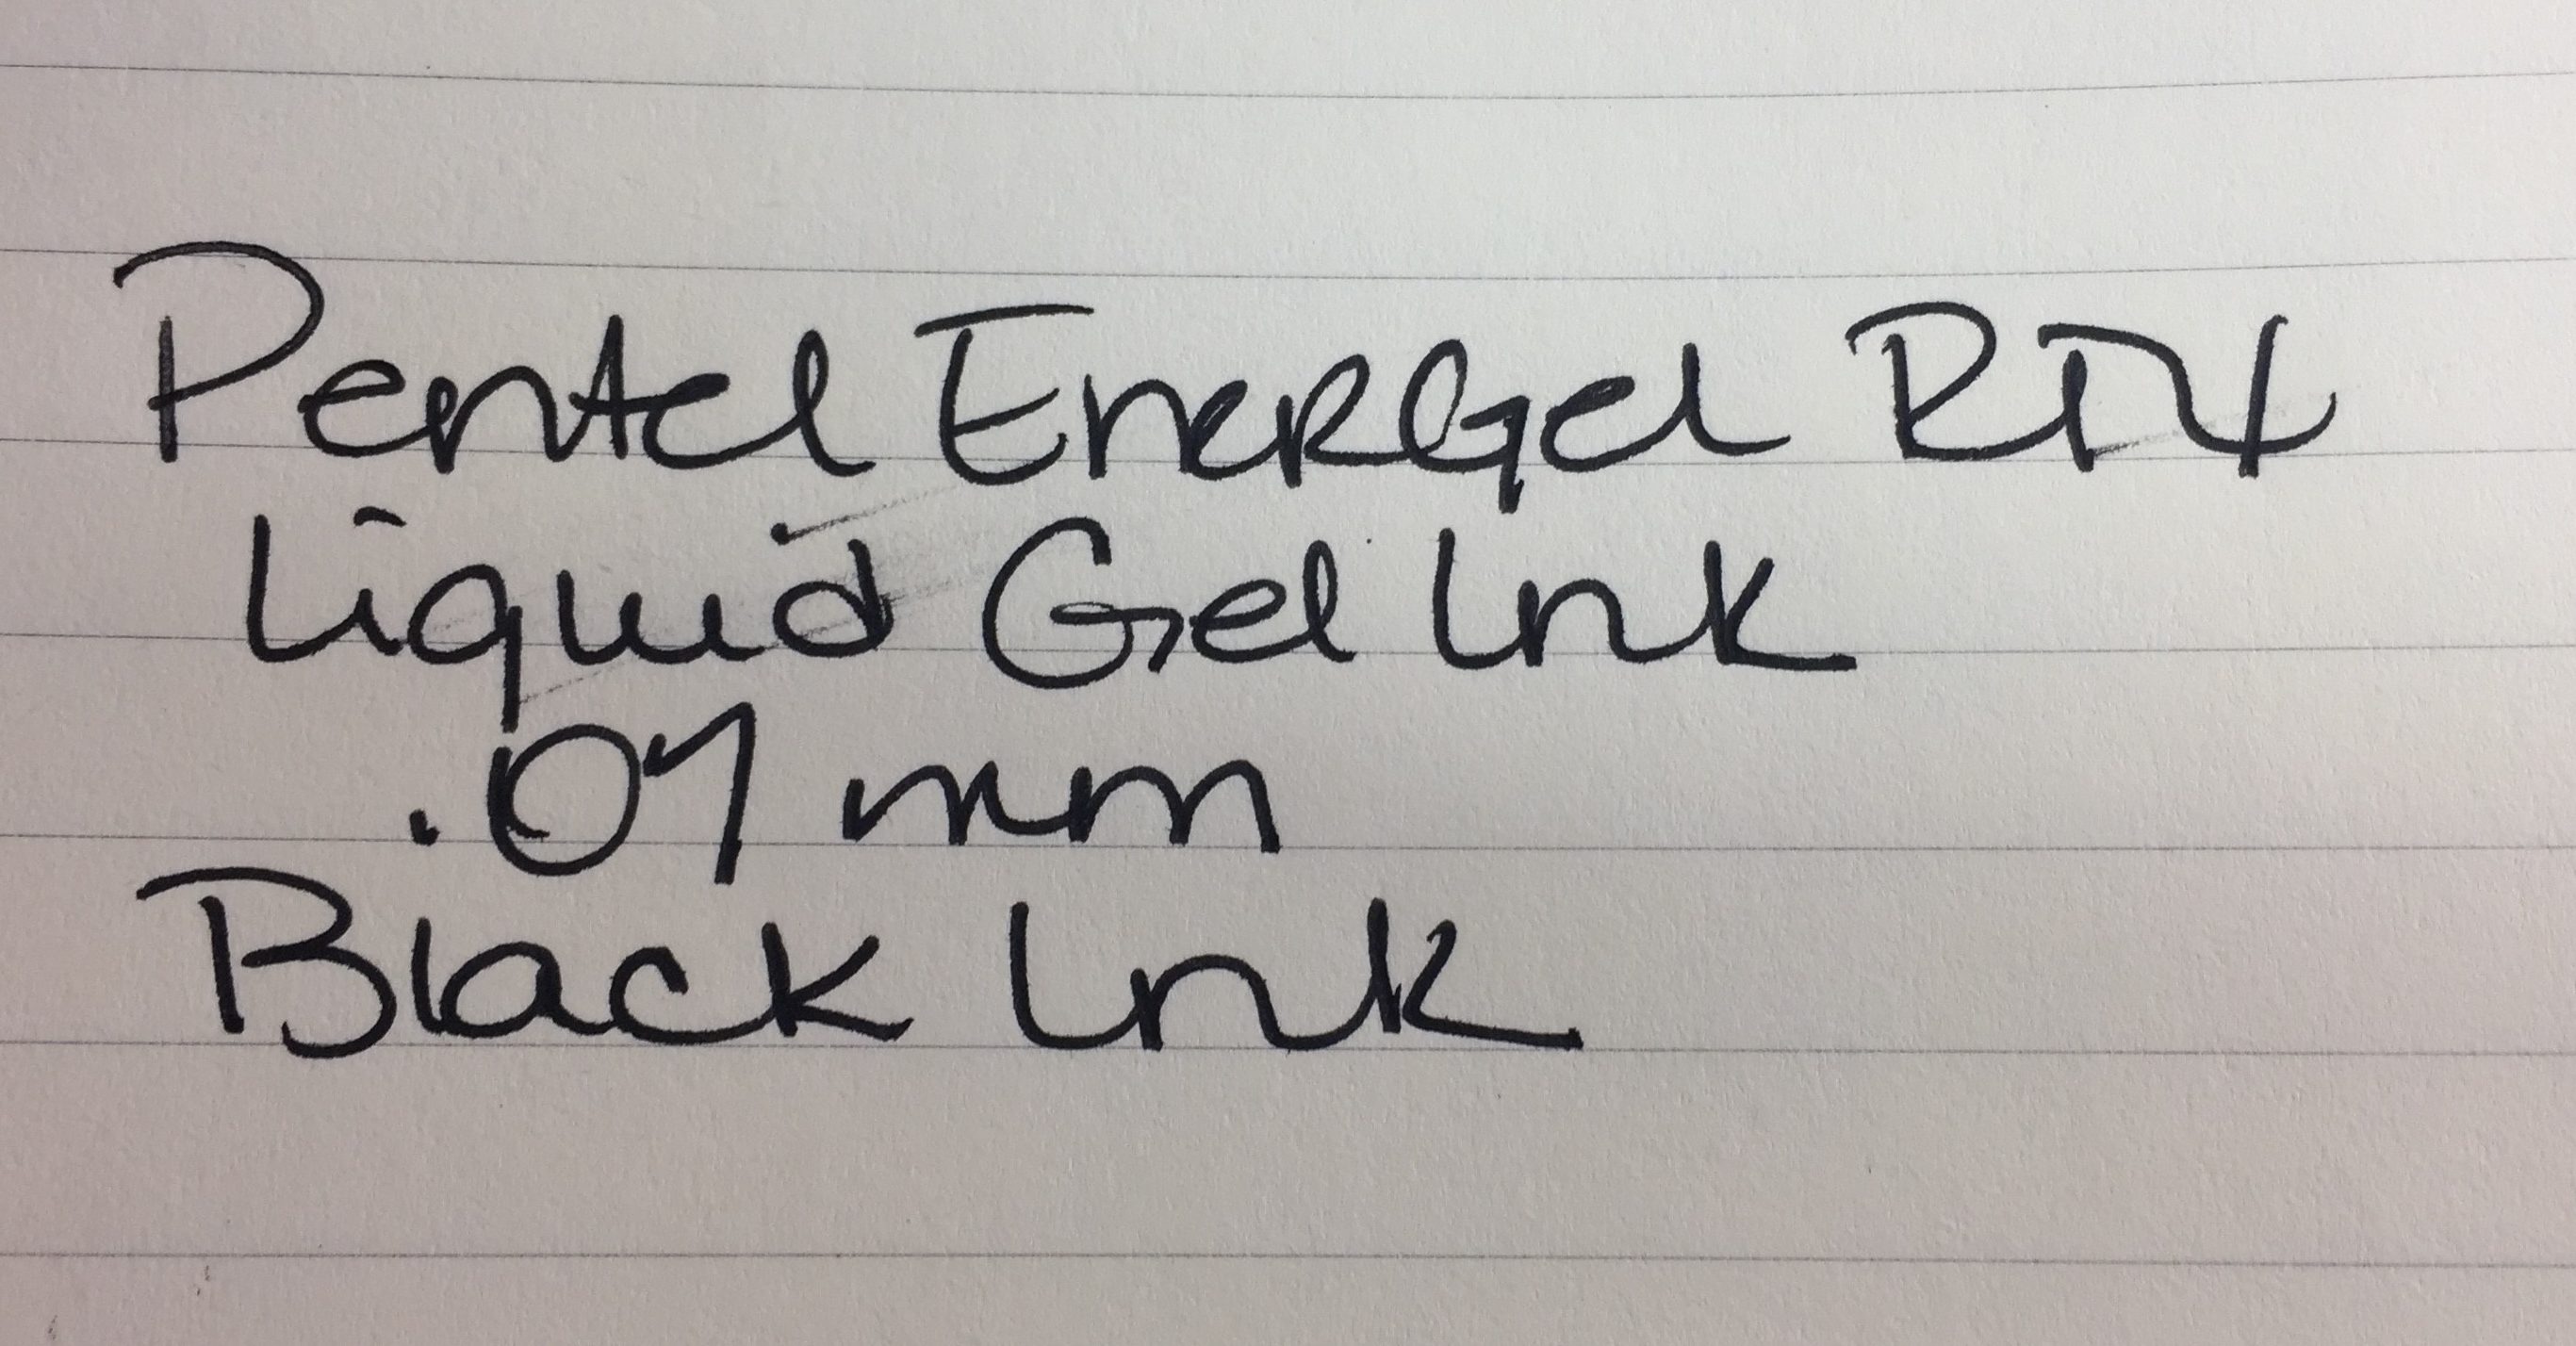 Pentel EnerGel RTX
Liquid Gel Ink
.07 mm
Black Ink